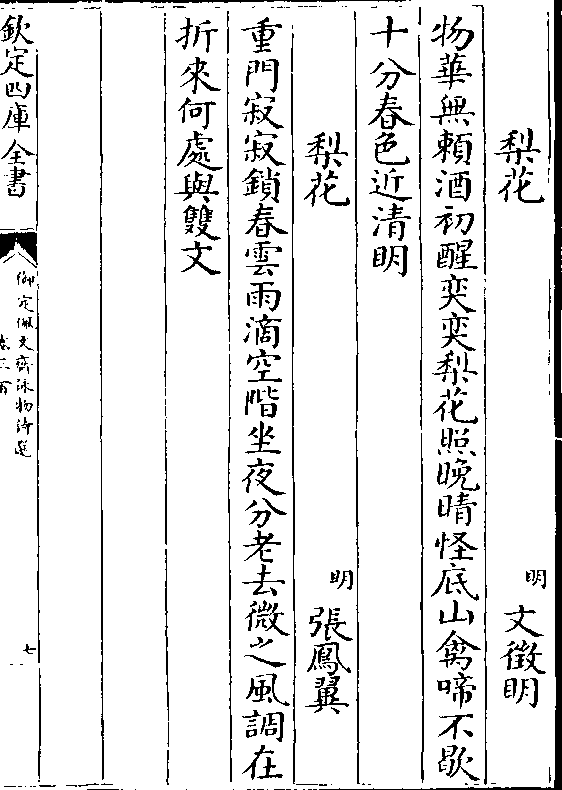 梨花　明　文徵明
物華無賴酒初醒奕奕梨花照晚晴怪底山禽啼不歇
十分春色近清明
梨花　明　張鳳翼
重門寂寂鎖春雲雨滴空階坐夜分老去微之風調在
折來何處與雙文
欽定四庫全書
御定佩文齋詠物詩選
七